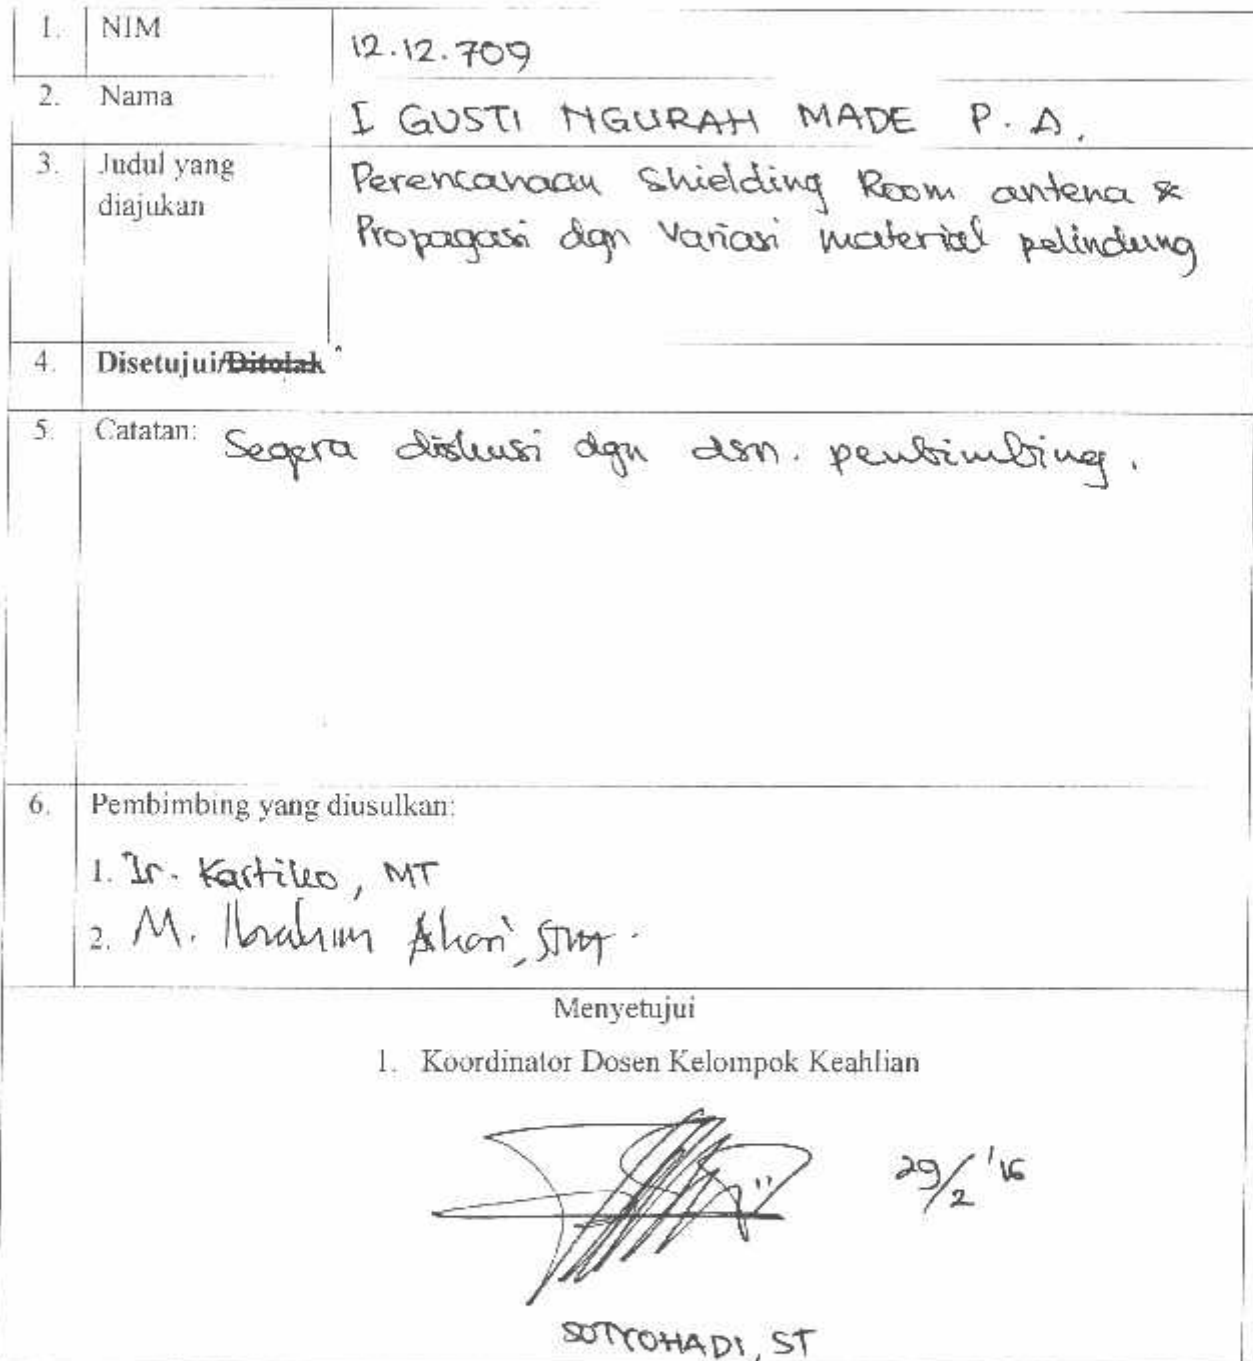 1. NIM 12.12.709
2. Nama I GUSTI NGURAH MADE P. A.
3. Judul yang diajukan Perencanaan Shielding Room antena &
Propagasi dgn Variasi material pelindung
4. Disetujui/Ditolak
5. Catatan: Segera diskusi dgn dsn. pembimbing.
6. Pembimbing yang diusulkan:
1. Ir. Kartiko, MT
2. M. Ibrahim Ashari, ST, MT
Menyetujui
1. Koordinator Dosen Kelompok Keahlian
29/2 '16
SOTYOHADI, ST